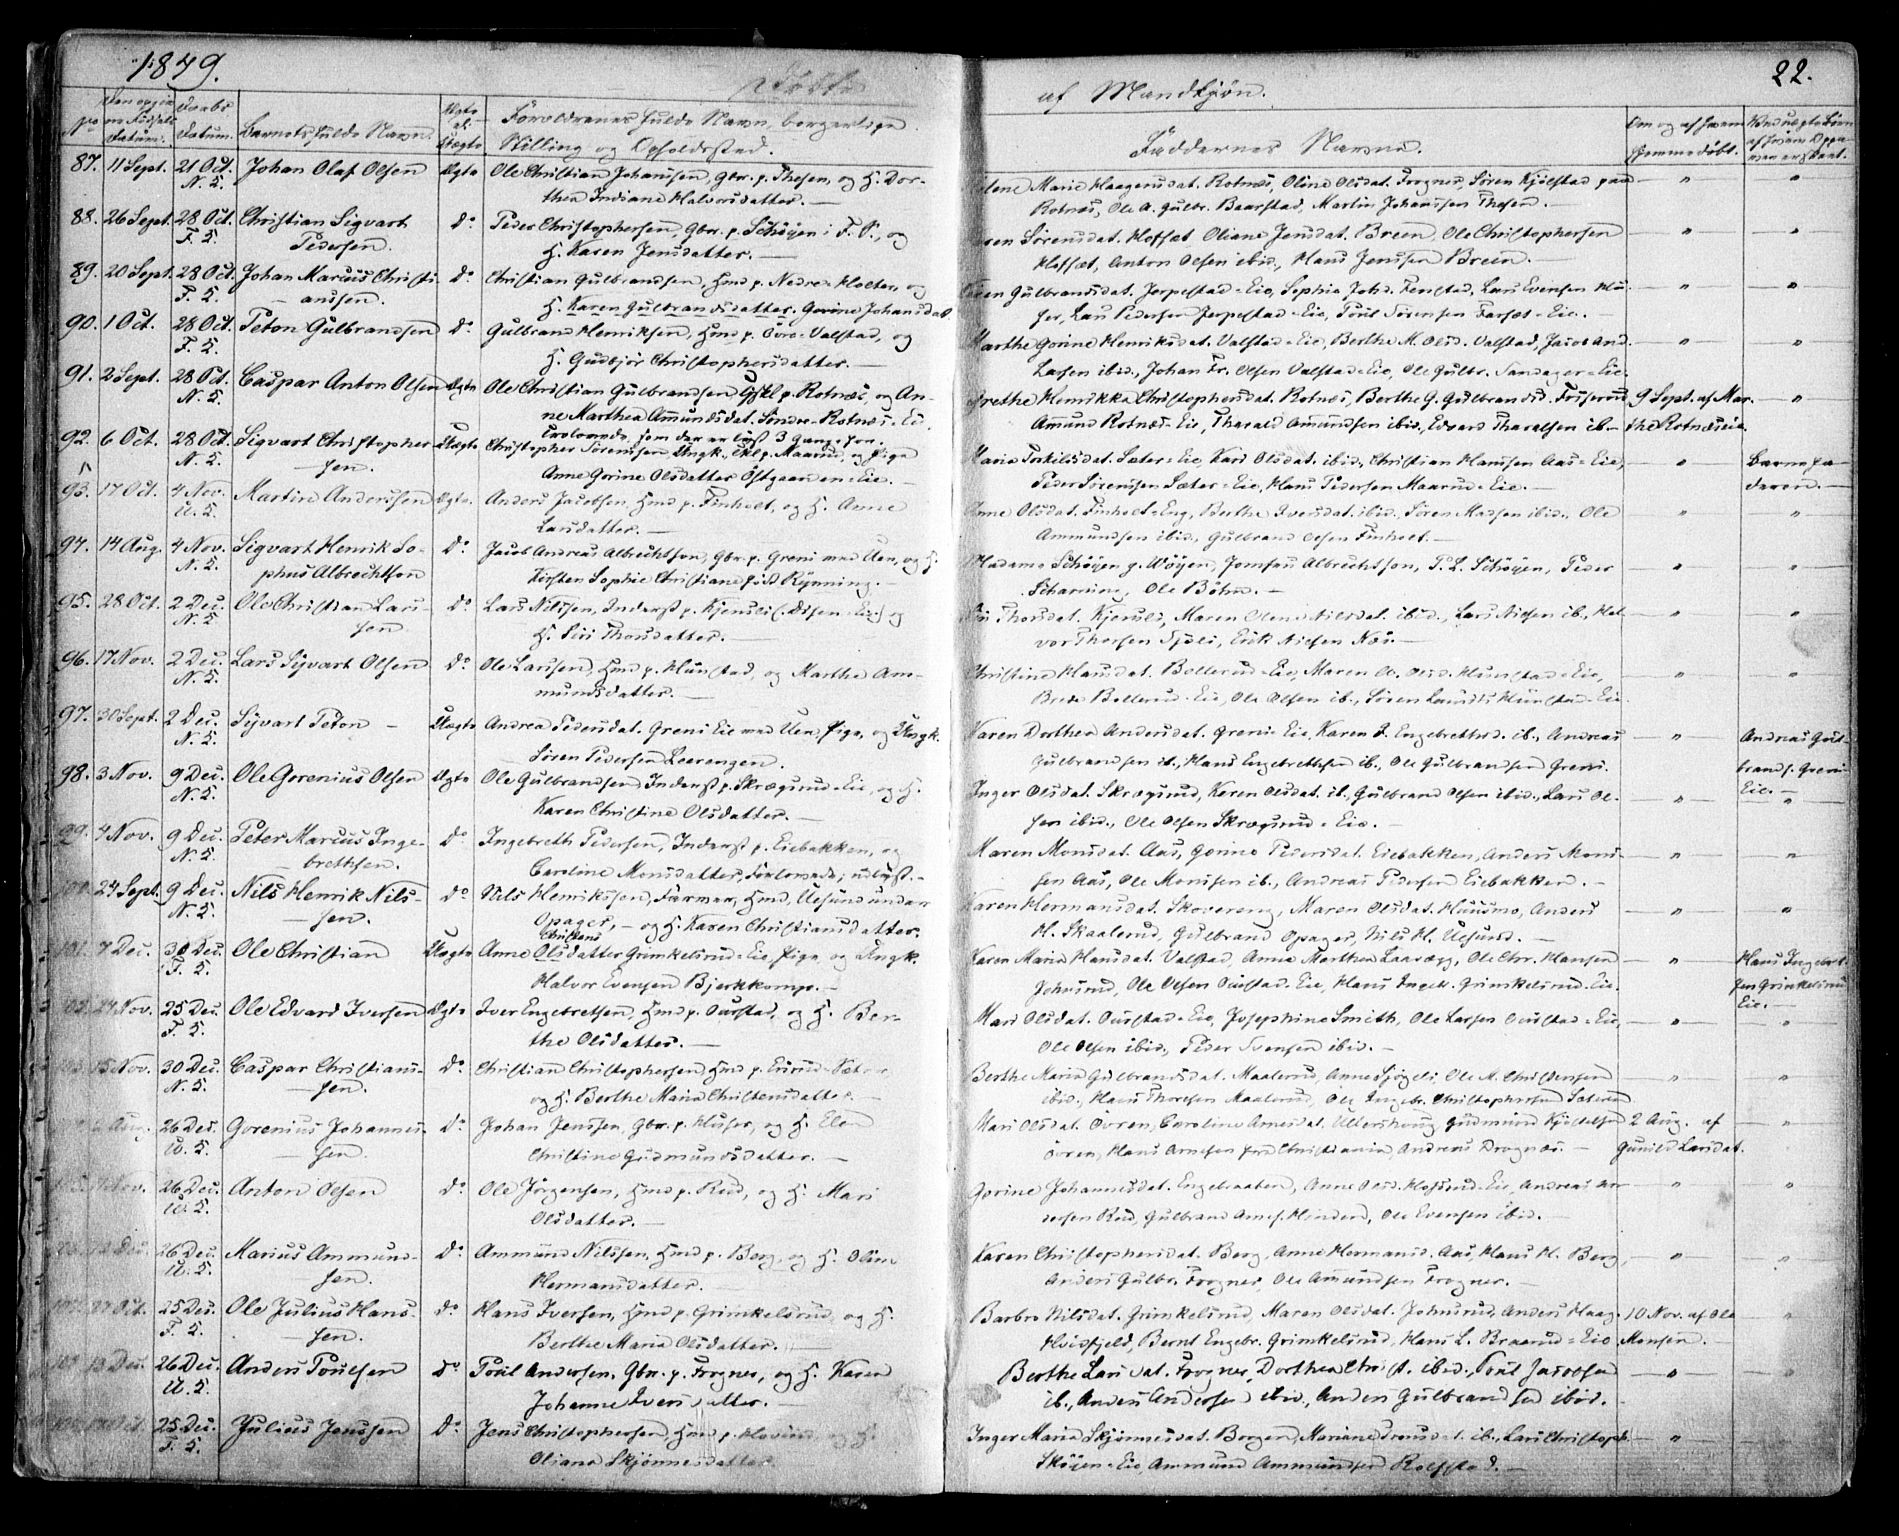 1849.
Døbte
af Mandkjøn.
22.
No
Den egne Fødsels Datum.
Daabs Datum.
Barnets fulde Navn.
Ægte el. Uægte
Forældrenes fulde Navn, borgerlige
Stilling og Opholdssted.
Faddernes Navne.
Om og af hvem hjemmedøbt.
87. 11 Sept. 21 Oct. Johan Olaf Olsen Ægte Ole Christian Johanssen, Gbr. p. Thesen, og H. Dor-
N. K. thea Indiane Halvorsdatter. —
Marie Haagensdat. Rotnæs, Oline Olsdat. Frogner, Søren Kjølstad paa — " — "
Rotnæs, Ole A. Gulbr. Baarstad, Martin Johanssen Thesen. —
88. 26 Sept. 28 Oct. Christian Sigvart Do Peder Christophersen, Gbr. p. Schøyen i F. S., og
F. K. Pedersen. H. Karen Jensdatter. —
Sørensdat. Hoffset, Oliane Jensdat. Breen, Ole Christophersen — " — "
Hoffset, Anton Olsen ibid., Hans Jenssen Breen. —
89. 20 Sept. 28 Oct. Johan Marcus Christi- Do Christian Gulbrandsen, Hmd p. Nedre-Holter, og
F. K. anssen. H. Karen Gulbrandsdatter. Gorine Johansdat
Gulbrandsdat. Jerpestad-Eie, Sophie Johd. Fenstad, Lars Evensen
Lars Pedersen Jerpestad-Eie, Poul Sørensen Farset-Eie. —
90. 1 Oct. 28 Oct. Peton Gulbrandsen Do Gulbrand Henriksen, Hmd p. Øvre-Valstad, og
F. K. H. Gudbjør Christophersdatter. —
Marthe Gorine Henriksdat. Valstad-Eie, Berthe M. Olsd. Valstad, Jacob And.
Larsen ibid., Johan Fr. Olsen Valstad-Eie, Ole Gulbr. Sandager-Eie.
91. 2 Sept. 28 Oct. Caspar Anton Olsen Ægte Ole Christian Gulbrandsen p. Rotnæs, og An-
N. K. ne Marthea Amundsdat. Søndre-Rotnæs-Ei.
Trolovede, som der er lyst 3 Gange for.
Grethe Henrikka Christophersdat. Rotnæs, Berthe G. Gulbrandsd. 9 Sept. af Mar-
Amund Rotnæs-Eie, Tharald Amundsen ibid., Edvard Tharalsen ib. — the Rotnæseie
92. 6 Oct. 28 Oct. Sigvart Christopher- Uægte Christopher Sørenssen, Ungk., p. Maarud, og Pige
N. K. sen. Anne Gorine Olsdatter Østgaarden-Eie. —
Marie Torkilsdat. Sæter-Eie, Kari Olsdat. ibid., Christian Hanssen Aas-Eie, — " — Barnefa-
Peder Sørenssen Sæter-Eie, Hans Pedersen Maarud-Eie. — deren. —
93. 17 Oct. 4 Nov. Martin Anderssen Ægte Anders Jacobsen, Hmd p. Finholt, og H. Anne
U. K. Larsdatter. —
Anne Olsdat. Finholt-Eng, Berthe Iversdat. ibid., Søren Madsen ibid., Ole
Ammundsen ibid., Gulbrand Olsen Finholt. —
94. 14 Aug. 4 Nov. Sigvart Henrik So- Do Jacob Andreas Albrechtson, Gbr. p. Greni med Uen, og H.
N. K. phus Albrechtson Kirsten Sophie Christiane født Rynning. —
Madame Schøyen g. Wøyen, Jomfru Albrechtson, T. L. Schøyen, Peder
Scharning, Ole Bøhn. —
95. 28 Oct. 2 Dec. Ole Christian Lars- Do Lars Nilssen, Inderst p. Kjensli (Disen-Eie) og
N. K. sen. H. Siri Thorsdatter. —
Thorsdat. Kjensli, Maren Olene Nilsdat. ibid., Lars Nilsen ib., Hal-
vor Thorsen Sjøli, Erik Nilsen Næs. —
96. 17 Nov. 2 Dec. Lars Syvart Olsen Do Ole Larssen, Hmd p. Hünstad, og Marthe Am-
N. K. mundsdatter. —
Christine Hansdat. Bollerud-Eie, Maren O. Olsd. Hünstad-Eie,
Brede Bollerud-Eie, Ole Olsen ib., Søren Hünstad-Eie
97. 30 Sept. 2 Dec. Syvart Peton — Uægte Andrea Pedersdat. Greni Eie med Uen, Pige, og Ungk.
N. K. Søren Pedersen Leerengen.
Karen Dorthea Andersdat. Greni-Eie, Karen I. Engebrethsd. ib., Andreas — " — Andreas Gul-
Gulbrandsen ib., Hans Engebrethsen ib., Ole Gulbrandsen Greni. brands. Greni-
Eie. —
98. 3 Nov. 9 Dec. Ole Gorenius Olsen Ægte Ole Gulbrandsen, Inderst p. Skrægsrud-Eie, og H.
N. K. Karen Christine Olsdatter. —
Inger Olsdat. Skrægsrud, Karen Olsdat. ib., Gulbrand Olsen ibid., Lars Ol-
sen ibid., Ole Olsen Skrægsrud-Eie. —
99. 4 Nov. 9 Dec. Peter Marcus Inge- Do Ingebreth Pedersen, Inderst p. Eiebakken, og
N. K. brethsen. Caroline Monsdatter, Forlovede; udlyst. —
Maren Monsdat. Aas, Gorine Pedersdat. Eiebakken, Anders Mons-
sen Aas, Ole Monssen ib., Andreas Pedersen Eiebakken. —
100. 24 Sept. 9 Dec. Nils Henrik Nils- Do Nils Henrikssen, Farver, Hmd, Uesund under
N. K. sen. Opager, — og H. Karen Christiansdatter.
Karen Hermansdat. Skovereng, Maren Olsdat. Huusmo, Anders
H. Skaalerud, Gulbrand Opager, Nils H. Uesund. —
101. 7 Dec. 30 Dec. Ole Christian Uægte Anne Olsdatter Grinkelsrud-Eie, Pige, og Ungk.
F. K. Halvor Evensen Bjerkkomp. —
Karen Maria Hansdat. Valstad, Anne Marthea Laavegg, Ole Chr. Hansen — " — Hans Ingebret-
Johnsrud, Ole Olsen Ourstad-Eie, Hans Ingebr. Grinkelsrud-Eie. sen Grinkelsrud
Eie. —
102. 24 Nov. 25 Dec. Ole Edvard Iversen Ægte Iver Engebretsen, Hmd p. Ourstad, og H. Ber-
F. K. the Olsdatter. —
Mari Olsdat. Ourstad-Eie, Josephine Smith, Ole Larsen Ourstad-Eie,
Ole Olsen ibid., Peder Svensen ibid. —
103. 15 Nov. 30 Dec. Caspar Christians- Do Christian Christophersen, Hmd p.
N. K. sen. og H. Berthe Maria Christensdatter. —
Berthe Maria Gulbrandsdat. Maalerud, Anne Sjøgeli, Ole M. Christensen
ibid., Hans Thoresen Maalerud, Ole Ingebr. Christophersen
Aug. 26 Dec. Gorenius Johannes- Do Johan Jenssen, Gbr. p. Huser, og H. Elen
U. K. sen. Christine Gudmundsdatter. —
Mari Olsdat. Øvren, Caroline Arnesdat. Ullershoug, Gudmund Kjostelsen 2 Aug. af
Øvren, Hans Arnesen fra Christiania, Andreas Drognæs. — Gunild Larsdat.
Nov. 26 Dec. Anton Olsen Do Ole Jørgensen, Hmd p. Rud, og H. Mari
U. K. Olsdatter. —
Gorine Johannesdat. Engebraaten, Anne Olsd. Eie, Andreas An-
dersen Rud, Gulbrand Arnes. Hinden, Ole Evensen ibid. —
Dec. 26 Dec. Marius Ammund- Do Ammund Nilssen, Hmd p. Berg, og H. Oline
U. K. sen. Hermansdatter. —
Karen Christophersdat. Berg, Anne Hermansd. Aas, Hans H. Berg,
Anders Gulbr. Frogner, Ole Amundsen Frogner. —
27 Oct. 25 Dec. Ole Julius Hans- Do Hans Iversen, Hmd p. Grinkelsrud, og H.
F. K. sen. Berthe Maria Olsdatter. —
Barbro Nilsdat. Grinkelsrud, Maren Olsdat. Johnsrud, Anders Haag- 10 Nov. af Ole
Hvidfjeld, Bernt Engebr. Grinkelsrud, Hans L. Braarud-Eie Monsen.
13 Dec. 26 Dec. Anders Poulsen Do Poul Andersen, Gbr. p. Frogner, og H. Karen
U. K. Johanne Iversdatter. —
Berthe Larsdat. Frogner, Dorthea Christ. ibid., Poul Jacobsen
ib., Anders Andersen ibid., Anders Gulbrandsen ibid.
Oct. 25 Dec. Julius Jenssen Do Jens Christophersen, Hmd p. og H.
F. K. Oliane Skjønnesdatter.
Inger Maria Skjønnesdat. Borgen, Mariane ib., Lars Christoph.
Skøyen-Eie, Ammund Ammundsen Rolfstad. —